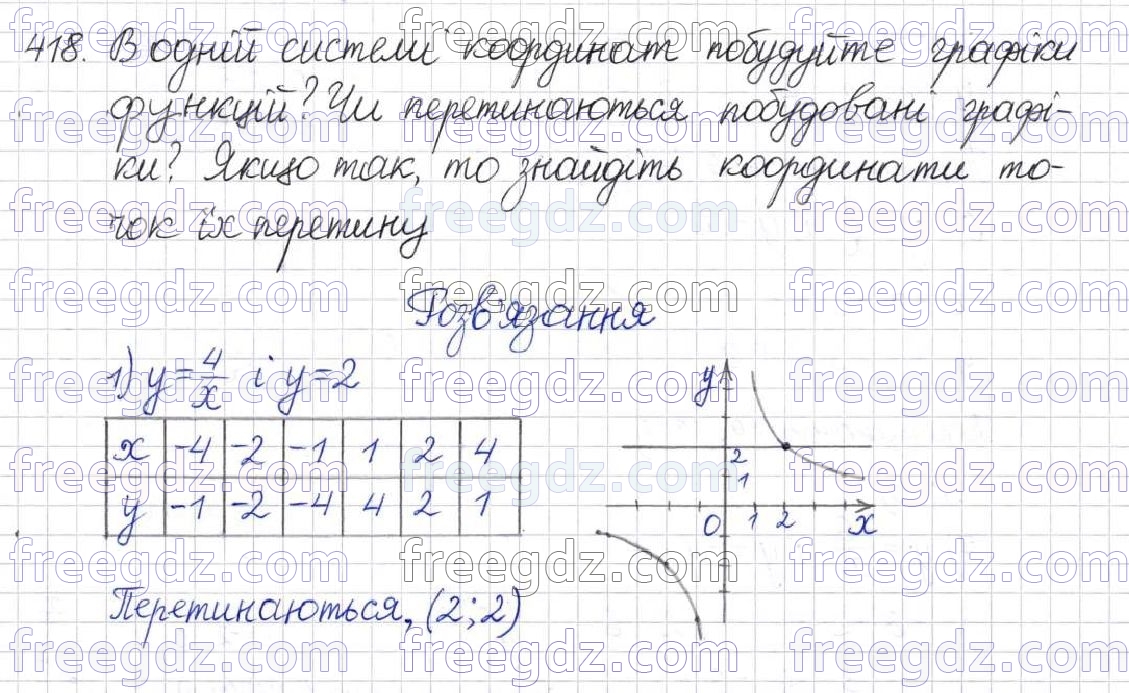 418. В одній системі координат побудуйте графіки
функцій? Чи перетинаються побудовані графі-
ки? Якщо так, то знайдіть координати то-
чок їх перетину
Розв'язання
1) y = 4/x і y = 2
x -4 -2 -1 1 2 4
y -1 -2 -4 4 2 1
Перетинаються, (2; 2)
y
2
1
0 1 2 x
freegdz.com